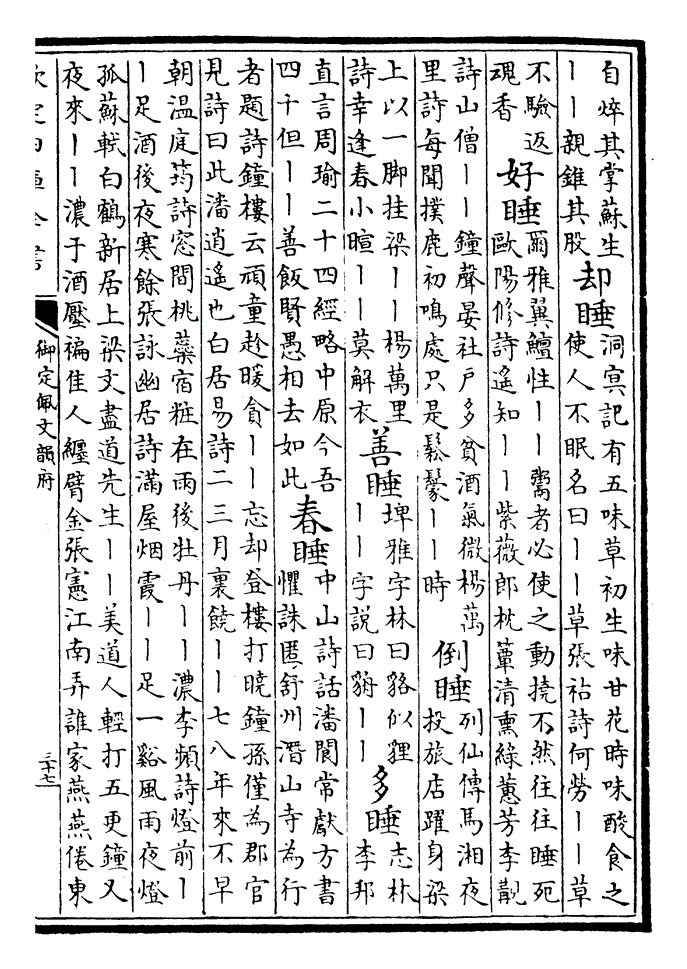 自焠其掌蘇生
丨丨親錐其股
却睡
洞冥記有五味草初生味甘花時味酸食之
使人不眠名曰丨丨草張祜詩何勞丨丨草
不驗返
魂香
好睡
爾雅翼鱣性丨丨鬻者必使之動撓不然往往睡死
歐陽修詩遙知丨丨紫薇郎枕簟清熏綠蕙芳李覯
詩山僧丨丨鐘聲晏社戶多貧酒氣微楊萬
里詩每聞撲鹿初鳴處只是鬆鬖丨丨時
倒睡
列仙傳馬湘夜
投旅店躍身梁
上以一脚挂梁丨丨楊萬里
詩幸逢春小暄丨丨莫解衣
善睡
埤雅字林曰貉似貍
丨丨字說曰貈丨丨
多睡
志林
李邦
直言周瑜二十四經略中原今吾
四十但丨丨善飯賢愚相去如此
春睡
中山詩話潘閬常獻方書
懼誅匿舒州潛山寺為行
者題詩鐘樓云頑童趁暖貪丨丨忘却登樓打曉鐘孫僅為郡官
見詩曰此潘逍遙也白居易詩二三月裏饒丨丨七八年來不早
朝溫庭筠詩窓間桃蘂宿粧在雨後牡丹丨丨濃李頻詩燈前丨
丨足酒後夜寒餘張詠幽居詩滿屋烟霞丨丨足一谿風雨夜燈
孤蘇軾白鶴新居上梁文盡道先生丨丨美道人輕打五更鐘又
夜來丨丨濃于酒壓褊佳人纏臂金張憲江南弄誰家燕燕倦東
欽定四庫全書
御定佩文韻府
三十七